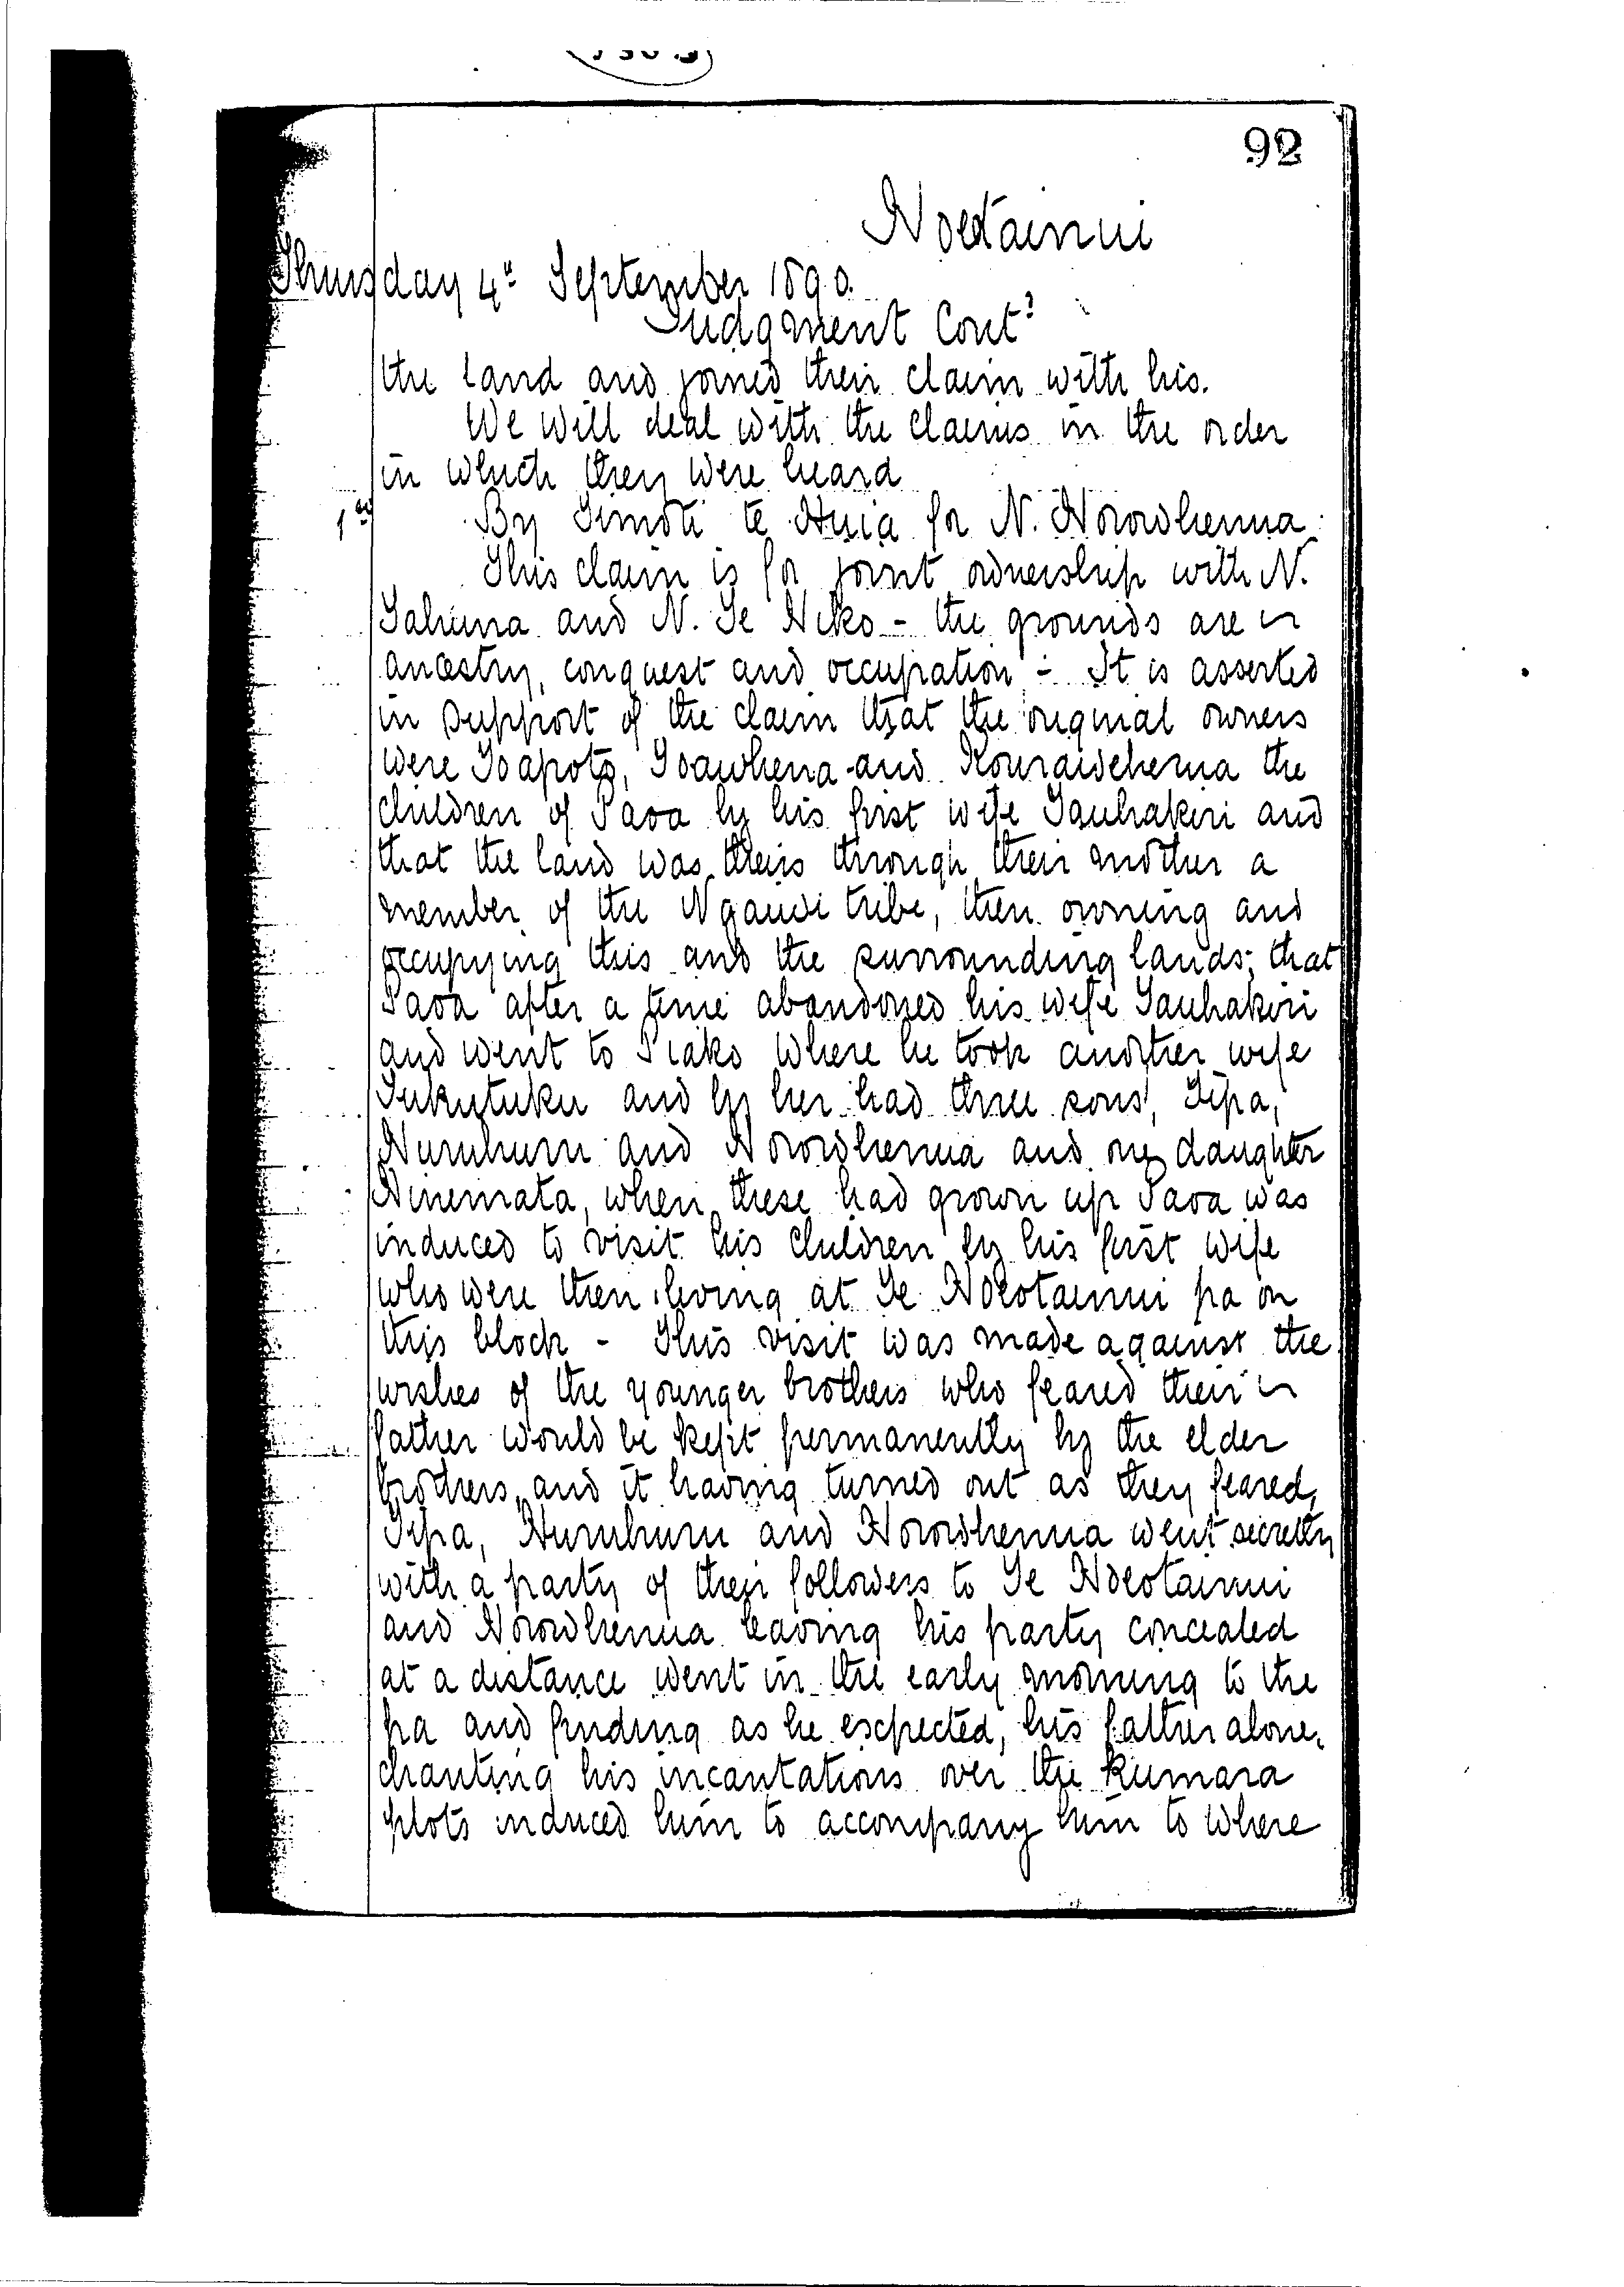 92
Hoetainui
Thursday 4th September 1890.
Judgment Contd
the land and joined their claim with his.
We will deal with the claims in the order
in which they were heard
1st By Timoti te Huia for N. Horowhenua.
This claim is for joint ownership with N.
Tahuna and N. Te Hiko - the grounds are
ancestry, conquest and occupation - It is asserted
in support of the claim that the original owners
were Toapoto, Toawhena and Kourawhenua the
children of Paoa by his first wife Tauhakiri and
that the land was theirs through their mother a
member of the Ngaiwi tribe, then owning and
occupying this and the surrounding lands; that
Paoa after a time abandoned his wife Tauhakiri
and went to Piako where he took another wife
Tukutuku and by her had three sons, Tipa,
Huruhuru and Horowhenua and one daughter
Hinemata, when these had grown up Paoa was
induced to visit his children by his first wife
who were then living at Te Hoeotainui pa on
this block - This visit was made against the
wishes of the younger brothers who feared their
father would be kept permanently by the elder
brothers, and it having turned out as they feared,
Tipa, Huruhuru and Horowhenua went secretly
with a party of their followers to Te Hoeotainui
and Horowhenua leaving his party concealed
at a distance went in the early morning to the
pa and finding as he expected, his father alone,
chanting his incantations over the kumara
plots induced him to accompany him to where